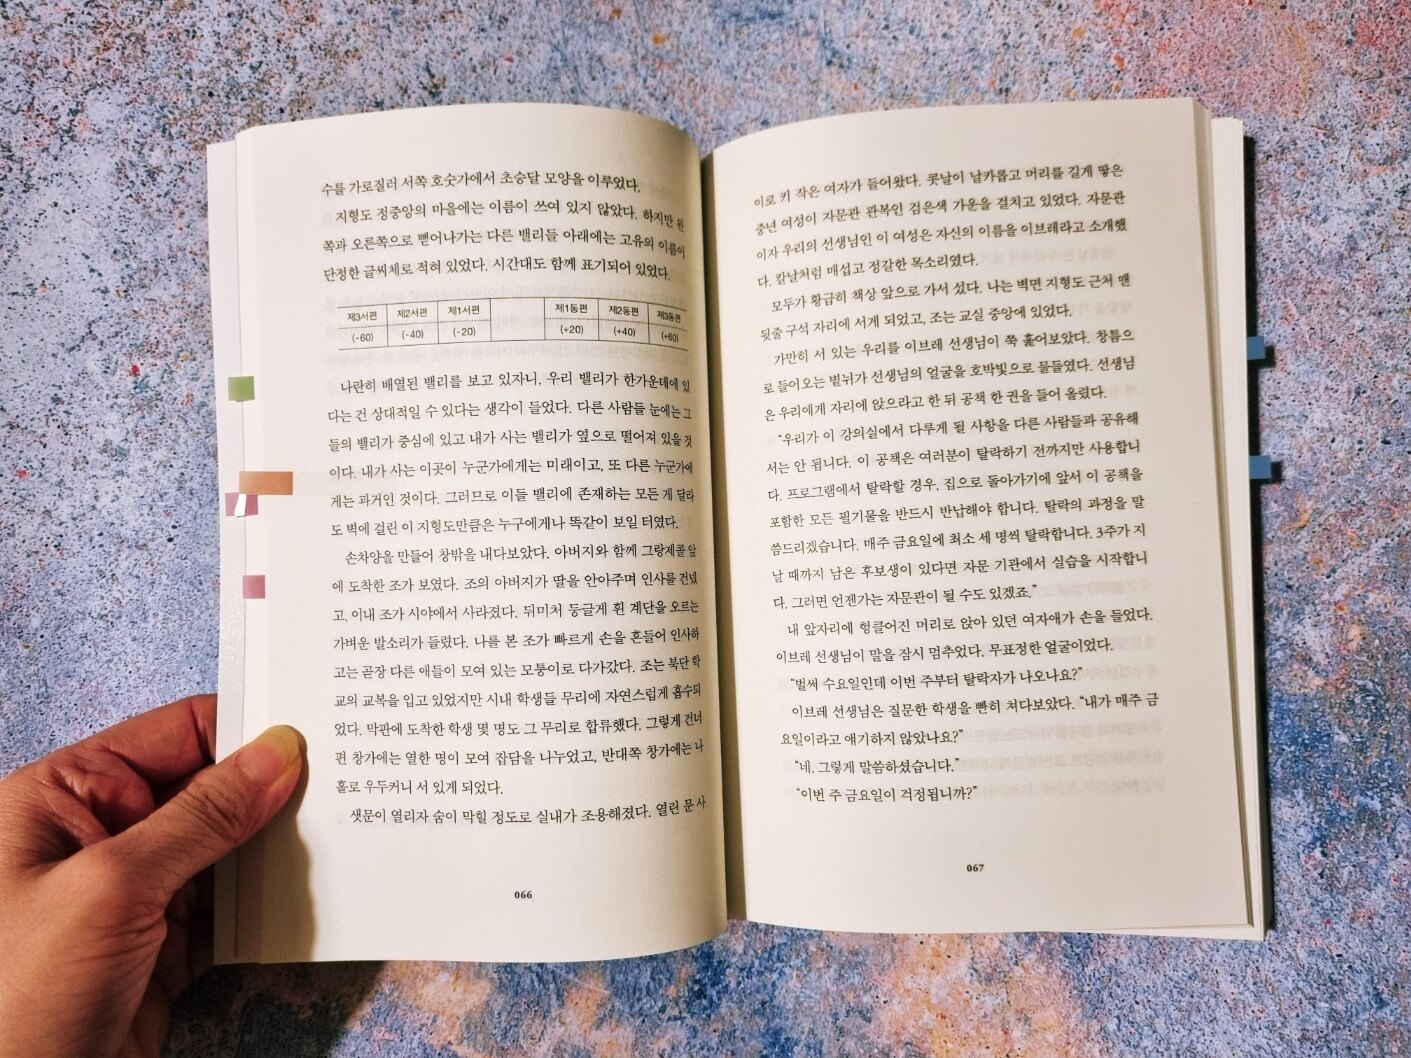 수를 가로질러 서쪽 호숫가에서 초승달 모양을 이루었다.
지형도 정중앙의 마을에는 이름이 쓰여 있지 않았다. 하지만 왼
쪽과 오른쪽으로 뻗어나가는 다른 밸리들 아래에는 고유의 이름이
단정한 글씨체로 적혀 있었다. 시간대도 함께 표기되어 있었다.
제3서편 제2서편 제1서편 제1동편 제2동편 제3동편
(-60) (-40) (-20) (+20) (+40) (+60)
나란히 배열된 밸리를 보고 있자니, 우리 밸리가 한가운데에 있
다는 건 상대적일 수 있다는 생각이 들었다. 다른 사람들 눈에는 그
들의 밸리가 중심에 있고 내가 사는 밸리가 옆으로 떨어져 있을 것
이다. 내가 사는 이곳이 누군가에게는 미래이고, 또 다른 누군가에
게는 과거인 것이다. 그러므로 이들 밸리에 존재하는 모든 게 달라
도 벽에 걸린 이 지형도만큼은 누구에게나 똑같이 보일 터였다.
손차양을 만들어 창밖을 내다보았다. 아버지와 함께 그랑제콜 앞
에 도착한 조가 보였다. 조의 아버지가 딸을 안아주며 인사를 건넸
고, 이내 조가 시야에서 사라졌다. 뒤미처 둥글게 휜 계단을 오르는
가벼운 발소리가 들렸다. 나를 본 조가 빠르게 손을 흔들어 인사하
고는 곧장 다른 애들이 모여 있는 모퉁이로 다가갔다. 조는 북단 학
교의 교복을 입고 있었지만 시내 학생들 무리에 자연스럽게 흡수되
었다. 막판에 도착한 학생 몇 명도 그 무리로 합류했다. 그렇게 건너
편 창가에는 열한 명이 모여 잡담을 나누었고, 반대쪽 창가에는 나
홀로 우두커니 서 있게 되었다.
샛문이 열리자 숨이 막힐 정도로 실내가 조용해졌다. 열린 문 사
066
이로 키 작은 여자가 들어왔다. 콧날이 날카롭고 머리를 길게 땋은
중년 여성이 자문관 관복인 검은색 가운을 걸치고 있었다. 자문관
이자 우리의 선생님인 이 여성은 자신의 이름을 이브레라고 소개했
다. 칼날처럼 매섭고 정갈한 목소리였다.
모두가 황급히 책상 앞으로 가서 섰다. 나는 벽면 지형도 근처 맨
뒷줄 구석 자리에 서게 되었고, 조는 교실 중앙에 있었다.
가만히 서 있는 우리를 이브레 선생님이 쭉 훑어보았다. 창틈으
로 들어오는 볕뉘가 선생님의 얼굴을 호박빛으로 물들였다. 선생님
은 우리에게 자리에 앉으라고 한 뒤 공책 한 권을 들어 올렸다.
“우리가 이 강의실에서 다루게 될 사항을 다른 사람들과 공유해
서는 안 됩니다. 이 공책은 여러분이 탈락하기 전까지만 사용합니
다. 프로그램에서 탈락할 경우, 집으로 돌아가기에 앞서 이 공책을
포함한 모든 필기물을 반드시 반납해야 합니다. 탈락의 과정을 말
씀드리겠습니다. 매주 금요일에 최소 세 명씩 탈락합니다. 3주가 지
날 때까지 남은 후보생이 있다면 자문 기관에서 실습을 시작합니
다. 그러면 언젠가는 자문관이 될 수도 있겠죠.”
내 앞자리에 헝클어진 머리로 앉아 있던 여자애가 손을 들었다.
이브레 선생님이 말을 잠시 멈추었다. 무표정한 얼굴이었다.
“벌써 수요일인데 이번 주부터 탈락자가 나오나요?”
이브레 선생님은 질문한 학생을 빤히 쳐다보았다. “내가 매주 금
요일이라고 얘기하지 않았나요?”
“네, 그렇게 말씀하셨습니다.”
“이번 주 금요일이 걱정됩니까?”
067